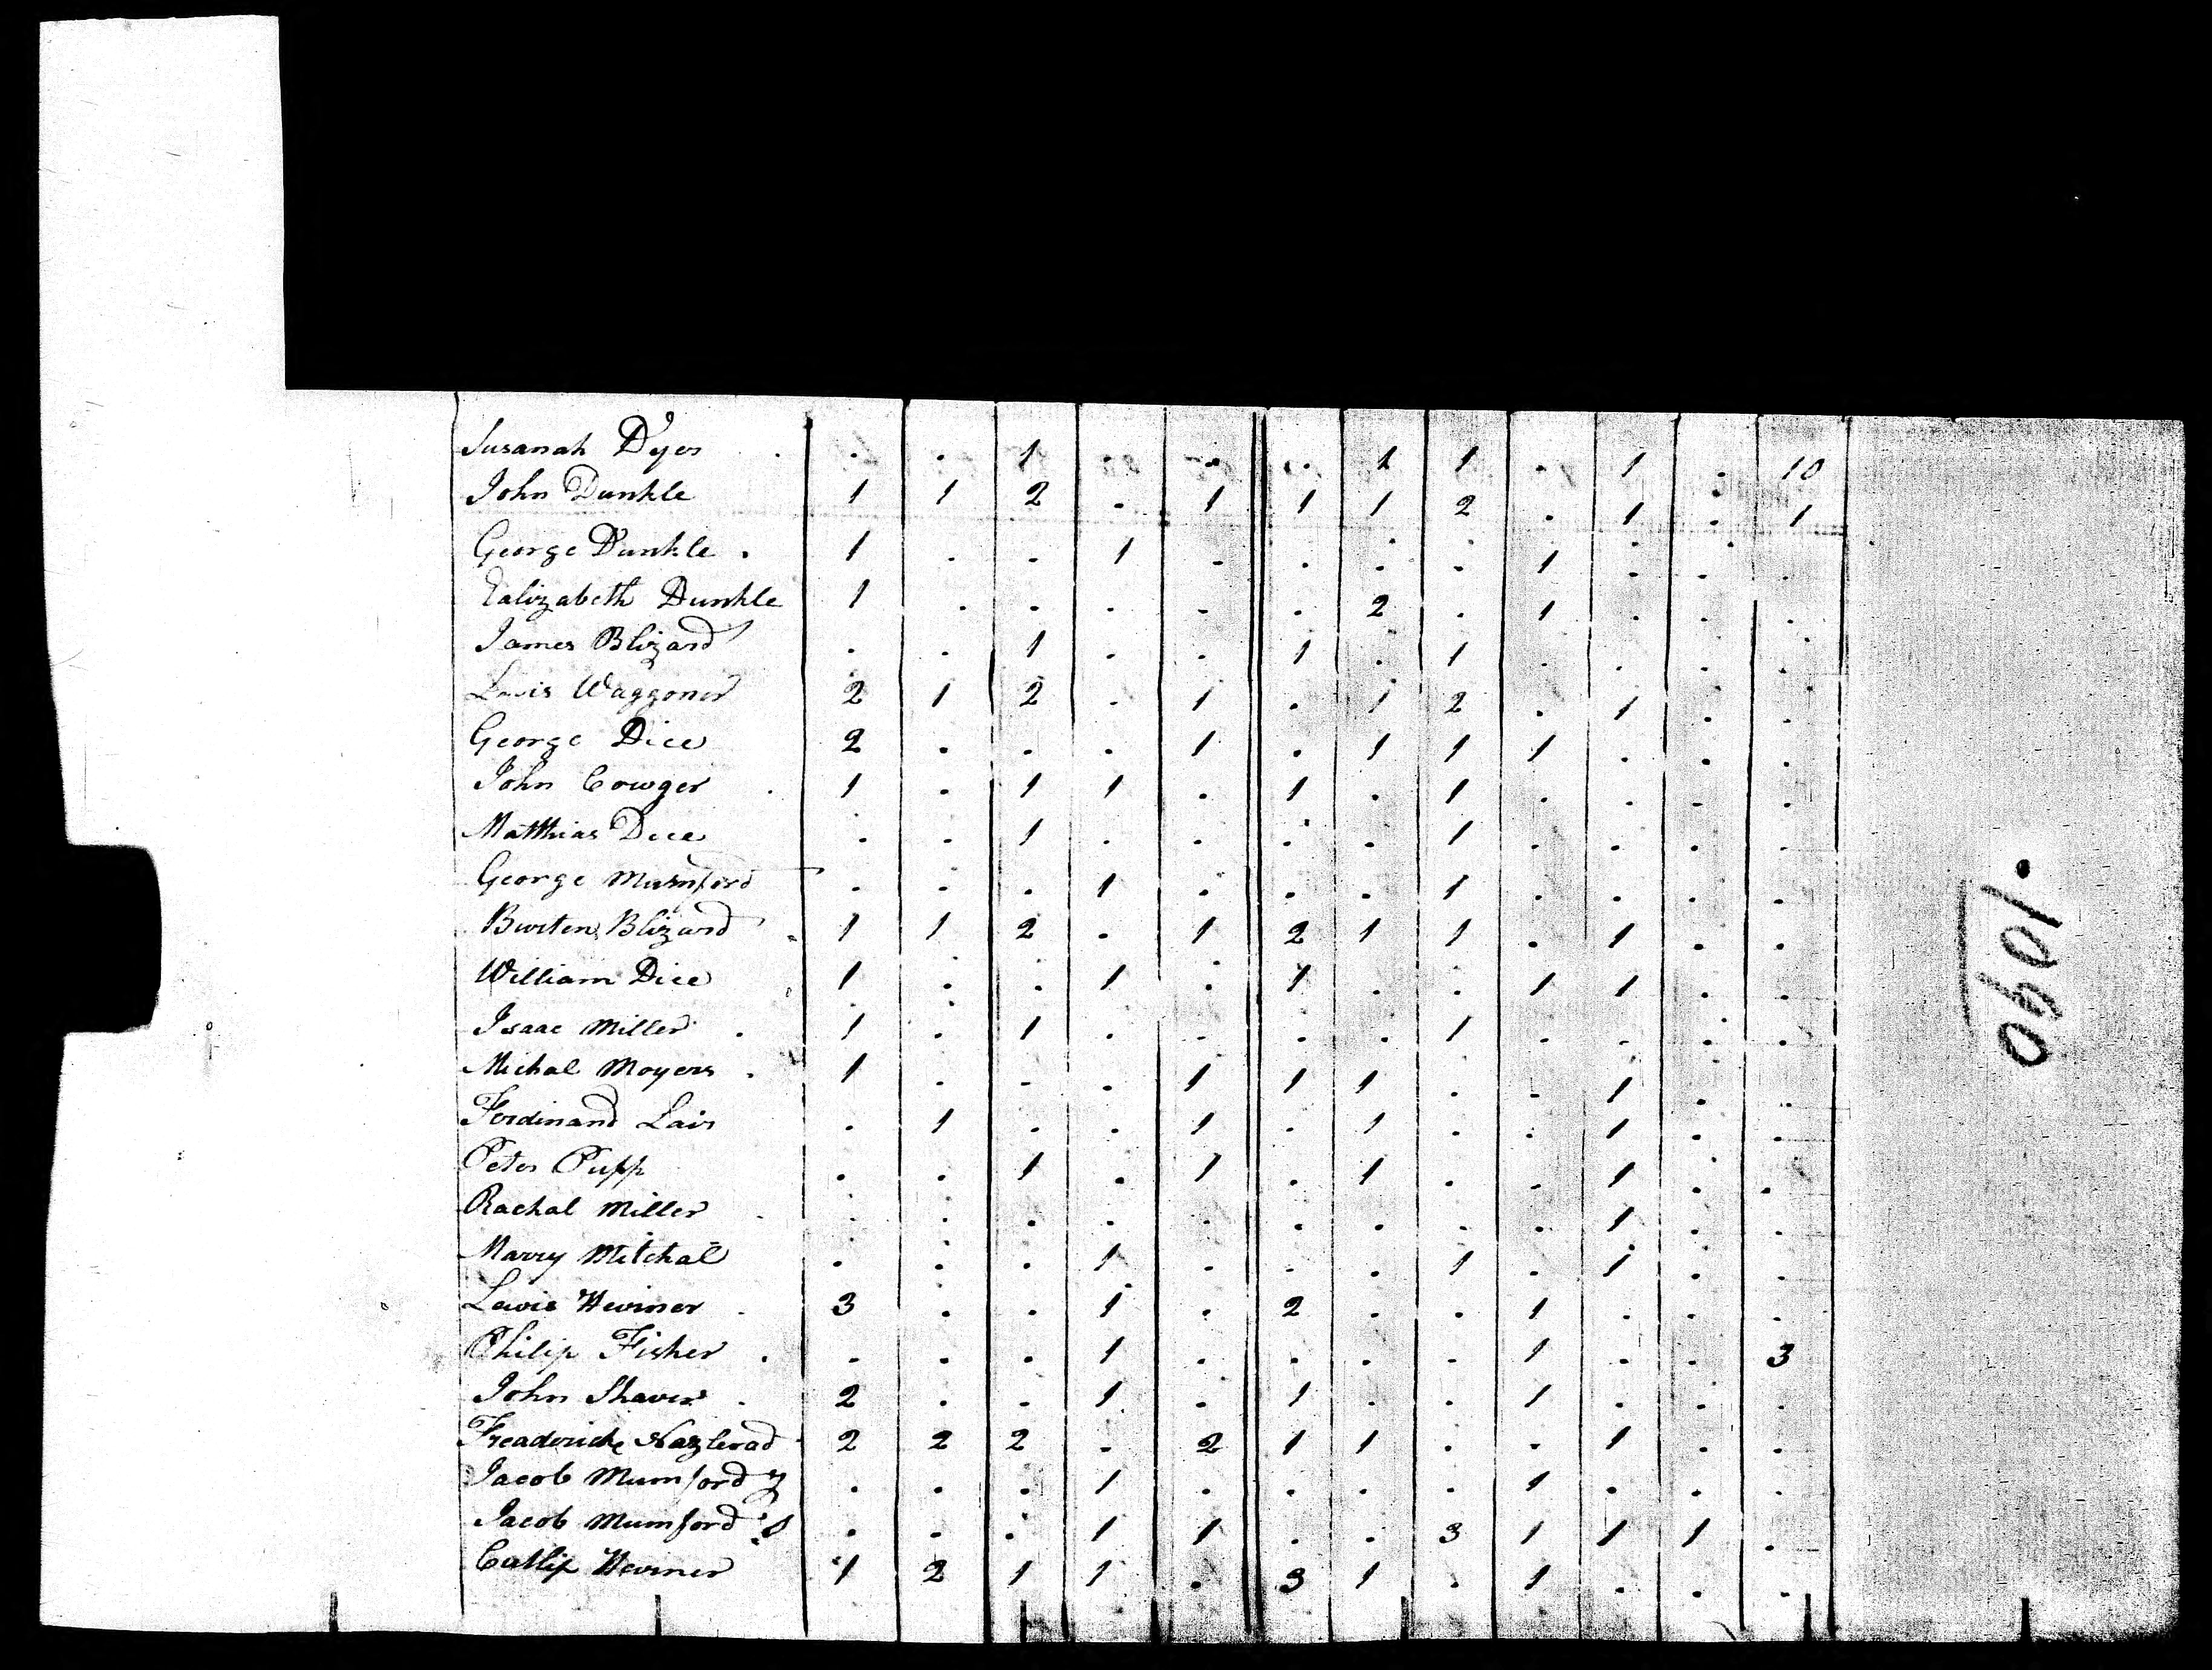 Susanah Dyer . . . 1 . . . 1 1 . 1 . 10
John Dunkle 1 1 2 . 1 1 1 2 . 1 . 1
George Dunkle . 1 . . 1 . . . . 1 . . .
Ealizabeth Dunkle 1 . . . . . 2 . 1 . . .
James Blizard . . 1 . . 1 . 1 . . . .
Lewis Waggoner 2 1 2 . 1 . 1 2 . 1 . .
George Dice 2 . . . 1 . 1 1 1 . . .
John Cowger . 1 . 1 1 . 1 . 1 . . . .
Matthias Dice . . 1 . . . . 1 . . . .
George Mumford . . . 1 . . . 1 . . . .
Burten Blizard . 1 1 2 . 1 2 1 1 . 1 . .
William Dice 1 . . 1 . 1 . . 1 1 . .
Isaac Miller . 1 . 1 . . . . 1 . . . .
Michal Moyers . 1 . . . 1 1 1 . . 1 . .
Ferdinand Lair . 1 . . 1 . 1 . . 1 . .
Peter Pupp . . 1 . 1 . 1 . . 1 . .
Rachal Miller . . . . . . . . . . 1 . .
Marry Mitchal . . . 1 . . . 1 . 1 . .
Lewis Heviner . 3 . . 1 . 2 . . 1 . . .
Philip Fisher . . . . 1 . . . . 1 . . 3
John Shaver . 2 . . 1 . 1 . . 1 . . .
Freaderick 2 2 2 . 2 1 1 . . 1 . .
Jacob Mumford y . . . 1 . . . . 1 . . .
Jacob Mumford S . . . 1 1 . . 3 1 1 1 .
Catlip Hevener 1 2 1 1 . 3 1 . 1 . . .
1090